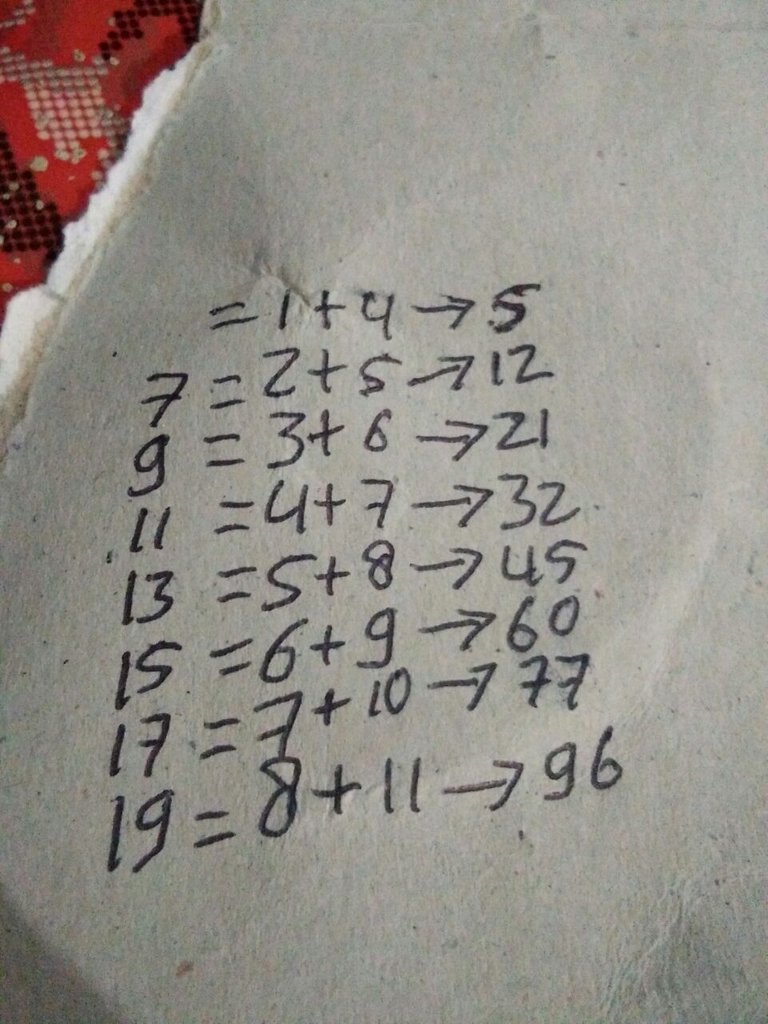 = 1 + 4 → 5
7 = 2 + 5 → 12
9 = 3 + 6 → 21
11 = 4 + 7 → 32
13 = 5 + 8 → 45
15 = 6 + 9 → 60
17 = 7 + 10 → 77
19 = 8 + 11 → 96